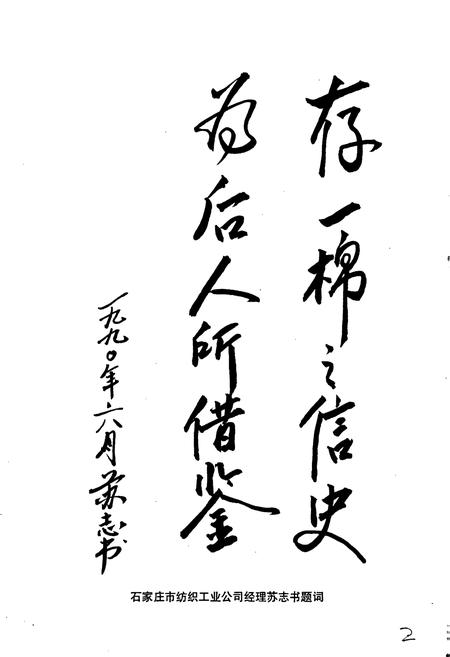 存一棉之信史
为后人所借鉴
一九九〇年六月苏志书
石家庄市纺织工业公司经理苏志书题词
2